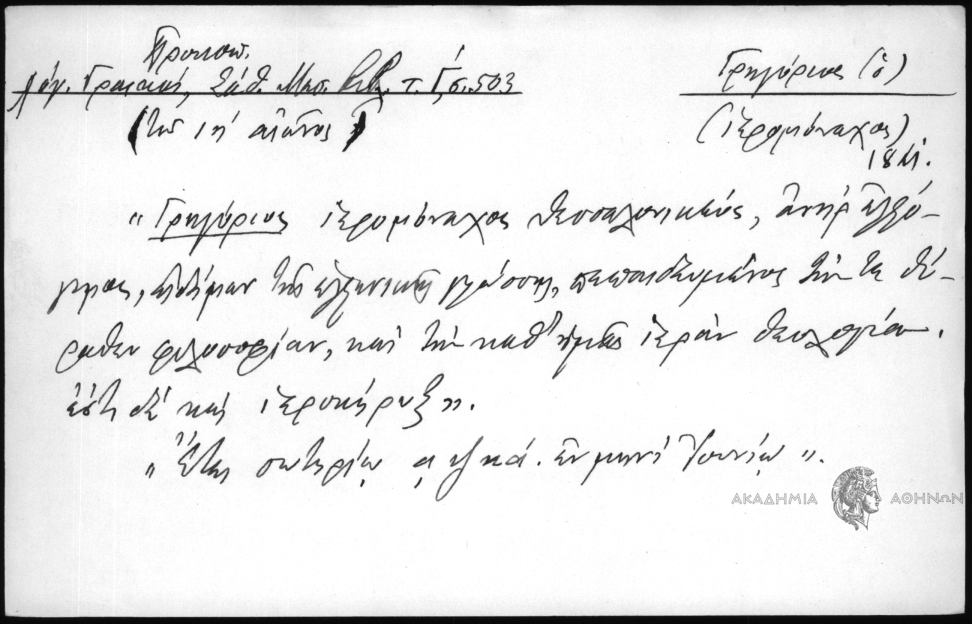 Προκοπ.
λόγ. Γραικούς, Σάθ. Μεσ. Βιβ. τ. Γ΄ σ. 503
(τοῦ ιη΄ αἰῶνος)
Γρηγόριος (ὁ)
(ἱερομόναχος)
18
"Γρηγόριος ἱερομόναχος Θεσσαλονικεύς, ἀνὴρ ἐλλό-
γιμος, εἰδήμων τῆς ἑλληνικῆς γλώσσης, πεπαιδευμένος τήν τε θύ-
ραθεν φιλοσοφίαν, καὶ τὴν καθ' ἡμᾶς ἱερὰν θεολογίαν.
ἐστὶ δὲ καὶ ἱεροκήρυξ".
"Ἔτει σωτηρίῳ ͵αψκά. ἐν μηνὶ Ἰουνίῳ".
ΑΚΑΔΗΜΙΑ ΑΘΗΝΩΝ